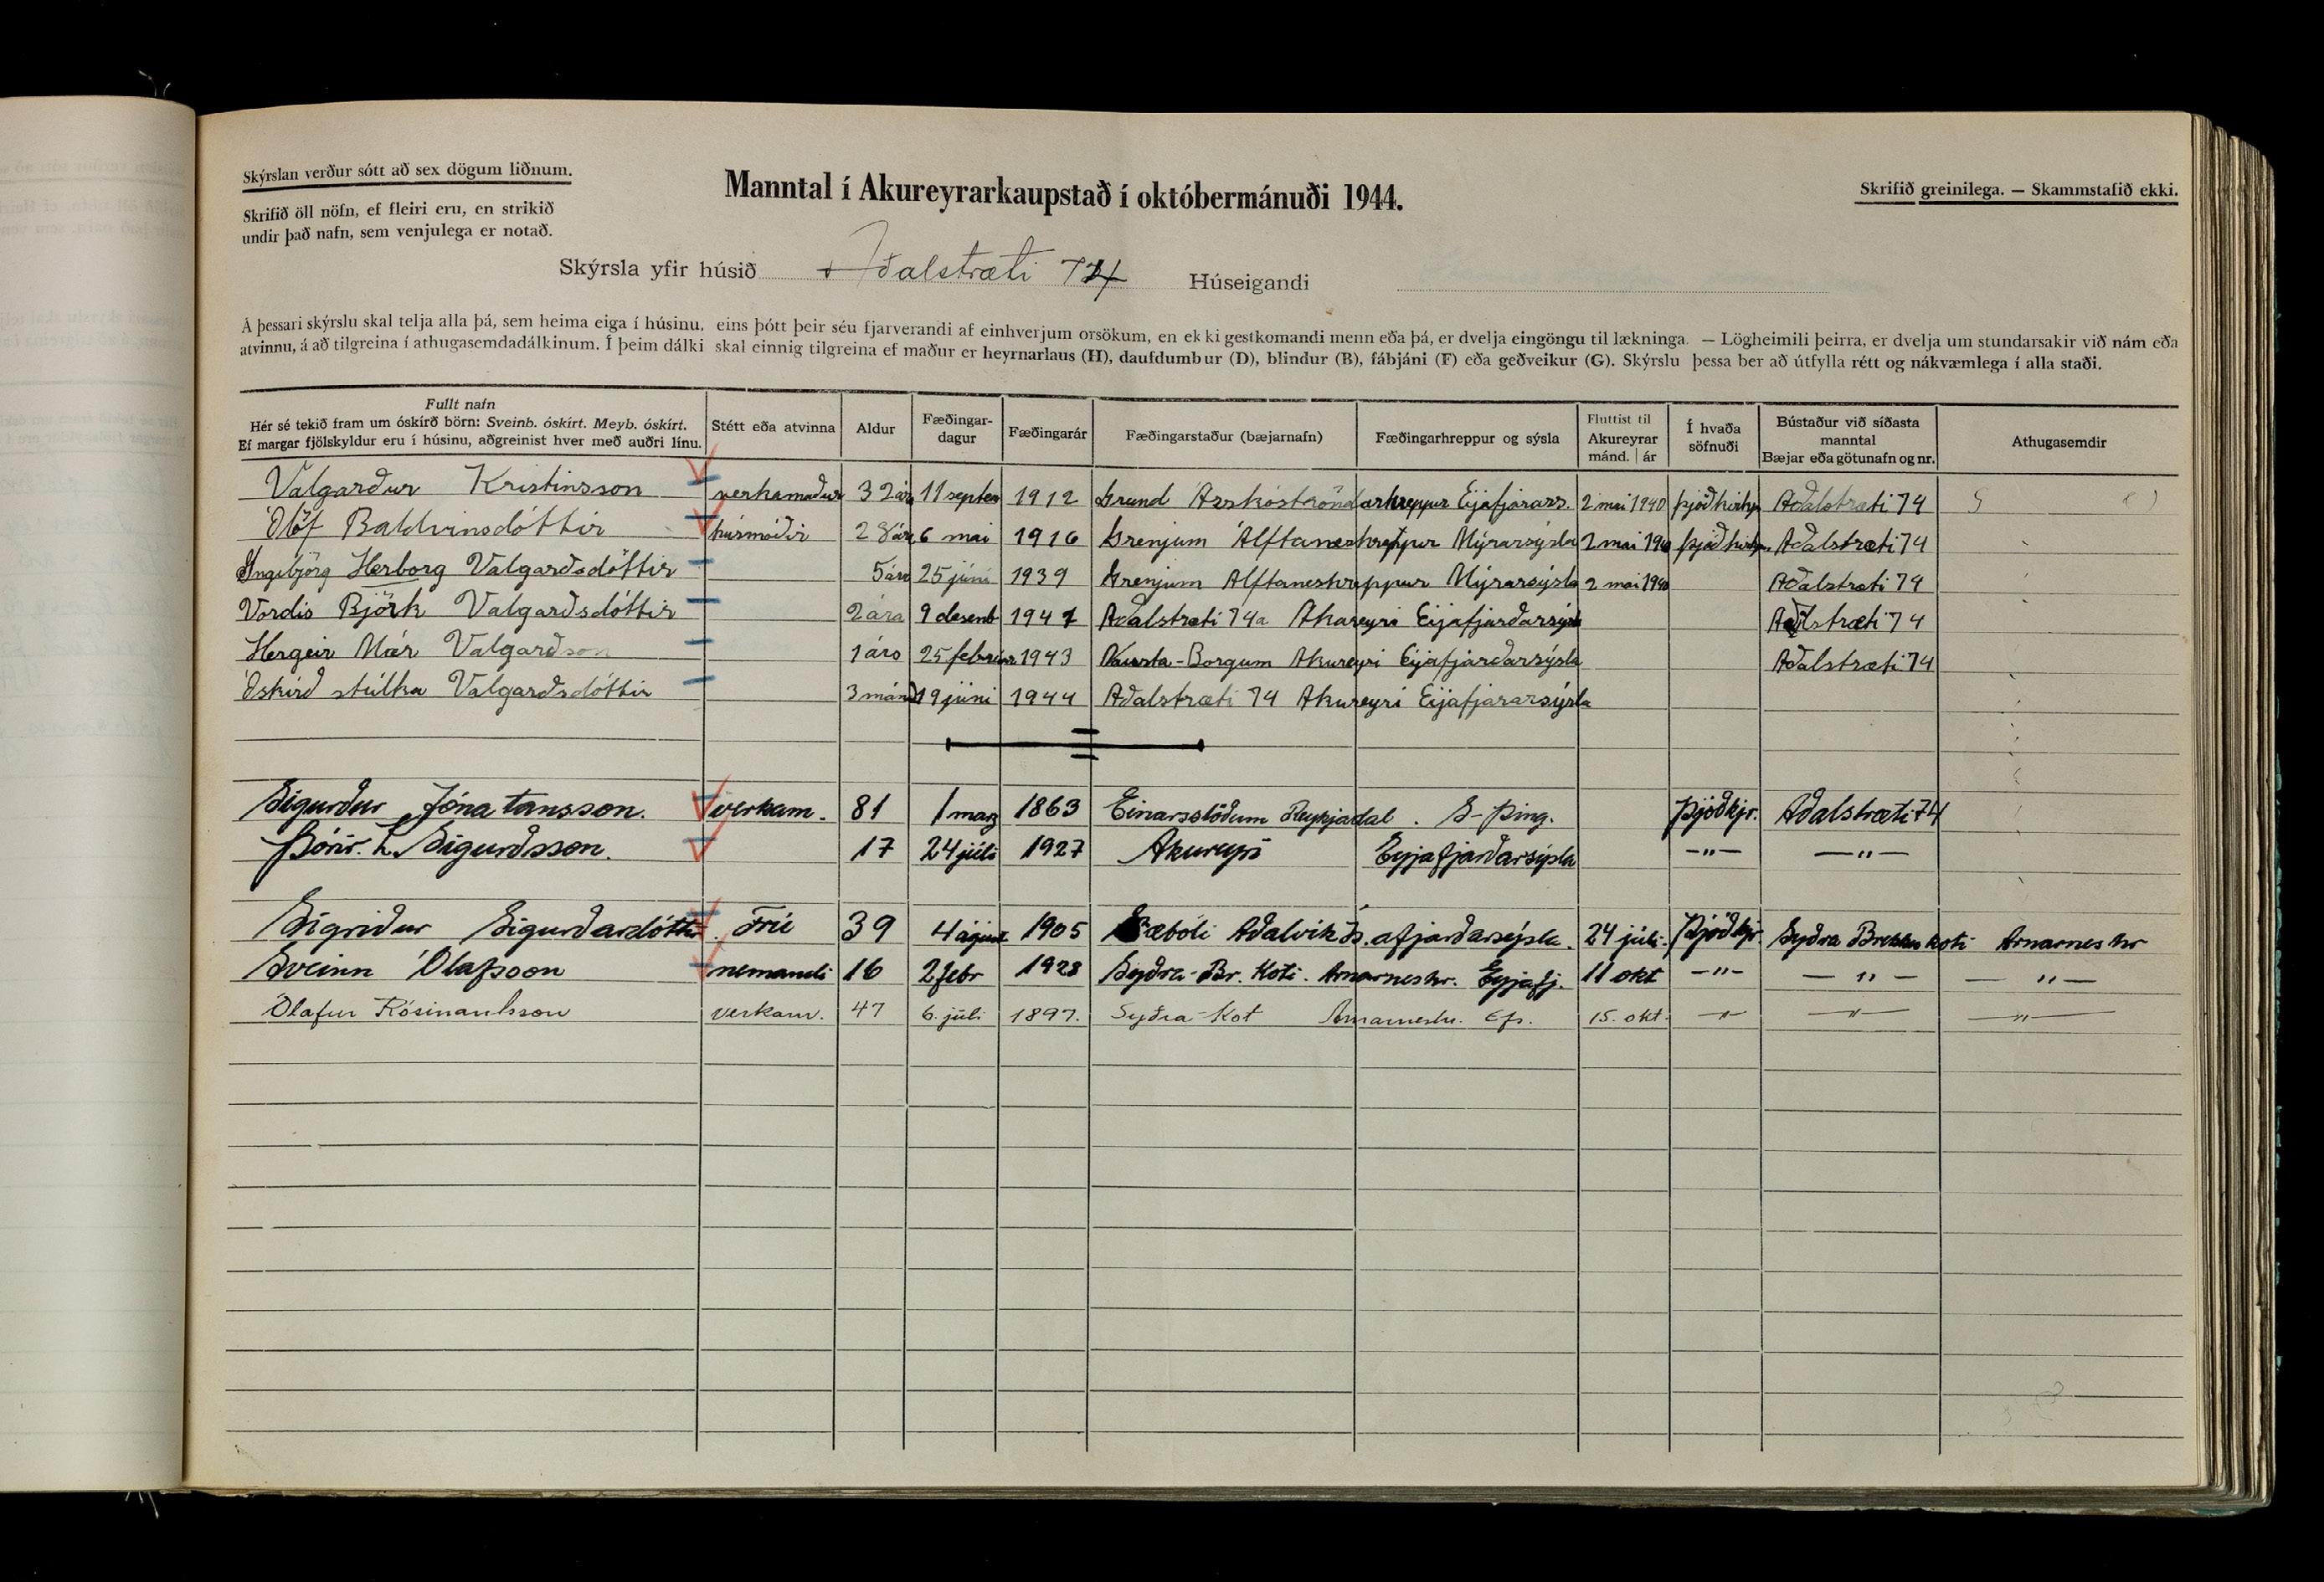 Skýrslan verður sótt að sex dögum liðnum.
Skrifið öll nöfn, ef fleiri eru, en strikið
undir það nafn, sem venjulega er notað.
Manntal í Akureyrarkaupstað í októbermánuði 1944.
Skrifið greinilega. — Skammstafið ekki.
Skýrsla yfir húsið Aðalstræti 74 Húseigandi
Á þessari skýrslu skal telja alla þá, sem heima eiga í húsinu, eins þótt þeir séu fjarverandi af einhverjum orsökum, en ekki gestkomandi menn eða þá, er dvelja eingöngu til lækninga. — Lögheimili þeirra, er dvelja um stundarsakir við nám eða
atvinnu, á að tilgreina í athugasemdadálkinum. Í þeim dálki skal einnig tilgreina ef maður er heyrnarlaus (H), daufdumbur (D), blindur (B), fábjáni (F) eða geðveikur (G). Skýrslu þessa ber að útfylla rétt og nákvæmlega í alla staði.
Fullt nafn
Hér sé tekið fram um óskírð börn: Sveinb. óskírt. Meyb. óskírt.
Ef margar fjölskyldur eru í húsinu, aðgreinist hver með auðri línu.
Stétt eða atvinna
Aldur
Fæðingar-
dagur
Fæðingarár
Fæðingarstaður (bæjarnafn)
Fæðingarhreppur og sýsla
Fluttist til
Akureyrar
mánd. | ár
Í hvaða
söfnuði
Bústaður við síðasta
manntal
Bæjar eða götunafn og nr.
Athugasemdir
Valgarður Kristinsson verkamaður 32 ára 11 septem 1912 Grund Árskóströndarhreppur Eijafjarars. 2 mai 1940 þjóðkirkju Aðalstræti 74
Ólöf Baldvinsdóttir húsmóðir 28 ára 6 mai 1916 Grenjum Álftaneshreppur Mýrarsýsla 2 mai 1940 þjóðkirkju Aðalstræti 74
Ingibjörg Herborg Valgarðsdóttir 5 ára 25 júni 1939 Grenjum Álftaneshreppur Mýrarsýsla 2 mai 1940 Aðalstræti 74
Vordis Björk Valgarðsdóttir 2 ára 9 desemb 1941 Aðalstræti 74a Akureyri Eijafjarðarsýsla Aðalstræti 74
Hergeir Már Valgarðson 1 árs 25 februar 1943 Nausta-Borgum Akureyri Eijafjarðarsýsla Aðalstræti 74
Óskírð stúlka Valgarðsdóttir 3 mánð 19 júni 1944 Aðalstræti 74 Akureyri Eijafjararsýsla
Sigurður Jónatansson. verkam. 81 1 marz 1863 Einarsstöðum Reykjadal. S-Þing. Þjóðkjr. Aðalstræti 74
Þórir. L. Sigurðsson. 17 24 júlí 1927 Akureyri Eyjafjarðarsýsla —"— —"—
Sigríður Sigurðardóttir. Frú 39 4 ágúst 1905 Sæbóli Aðalvik Ís.afjarðarsýsla. 24 júlí. Þjóðkjr. Syðra Brekkukoti Arnarneshr
Sveinn Ólafsson nemandi 16 2 febr 1928 Syðra-Br. Koti. Arnarneshr. Eyjafj. 11 okt —"— —"— —"—
Ólafur Rósinantsson verkam. 47 6. júlí 1897. Syðra-Kot Arnarneshr. Efs. 15. okt. —"— —"— —"—